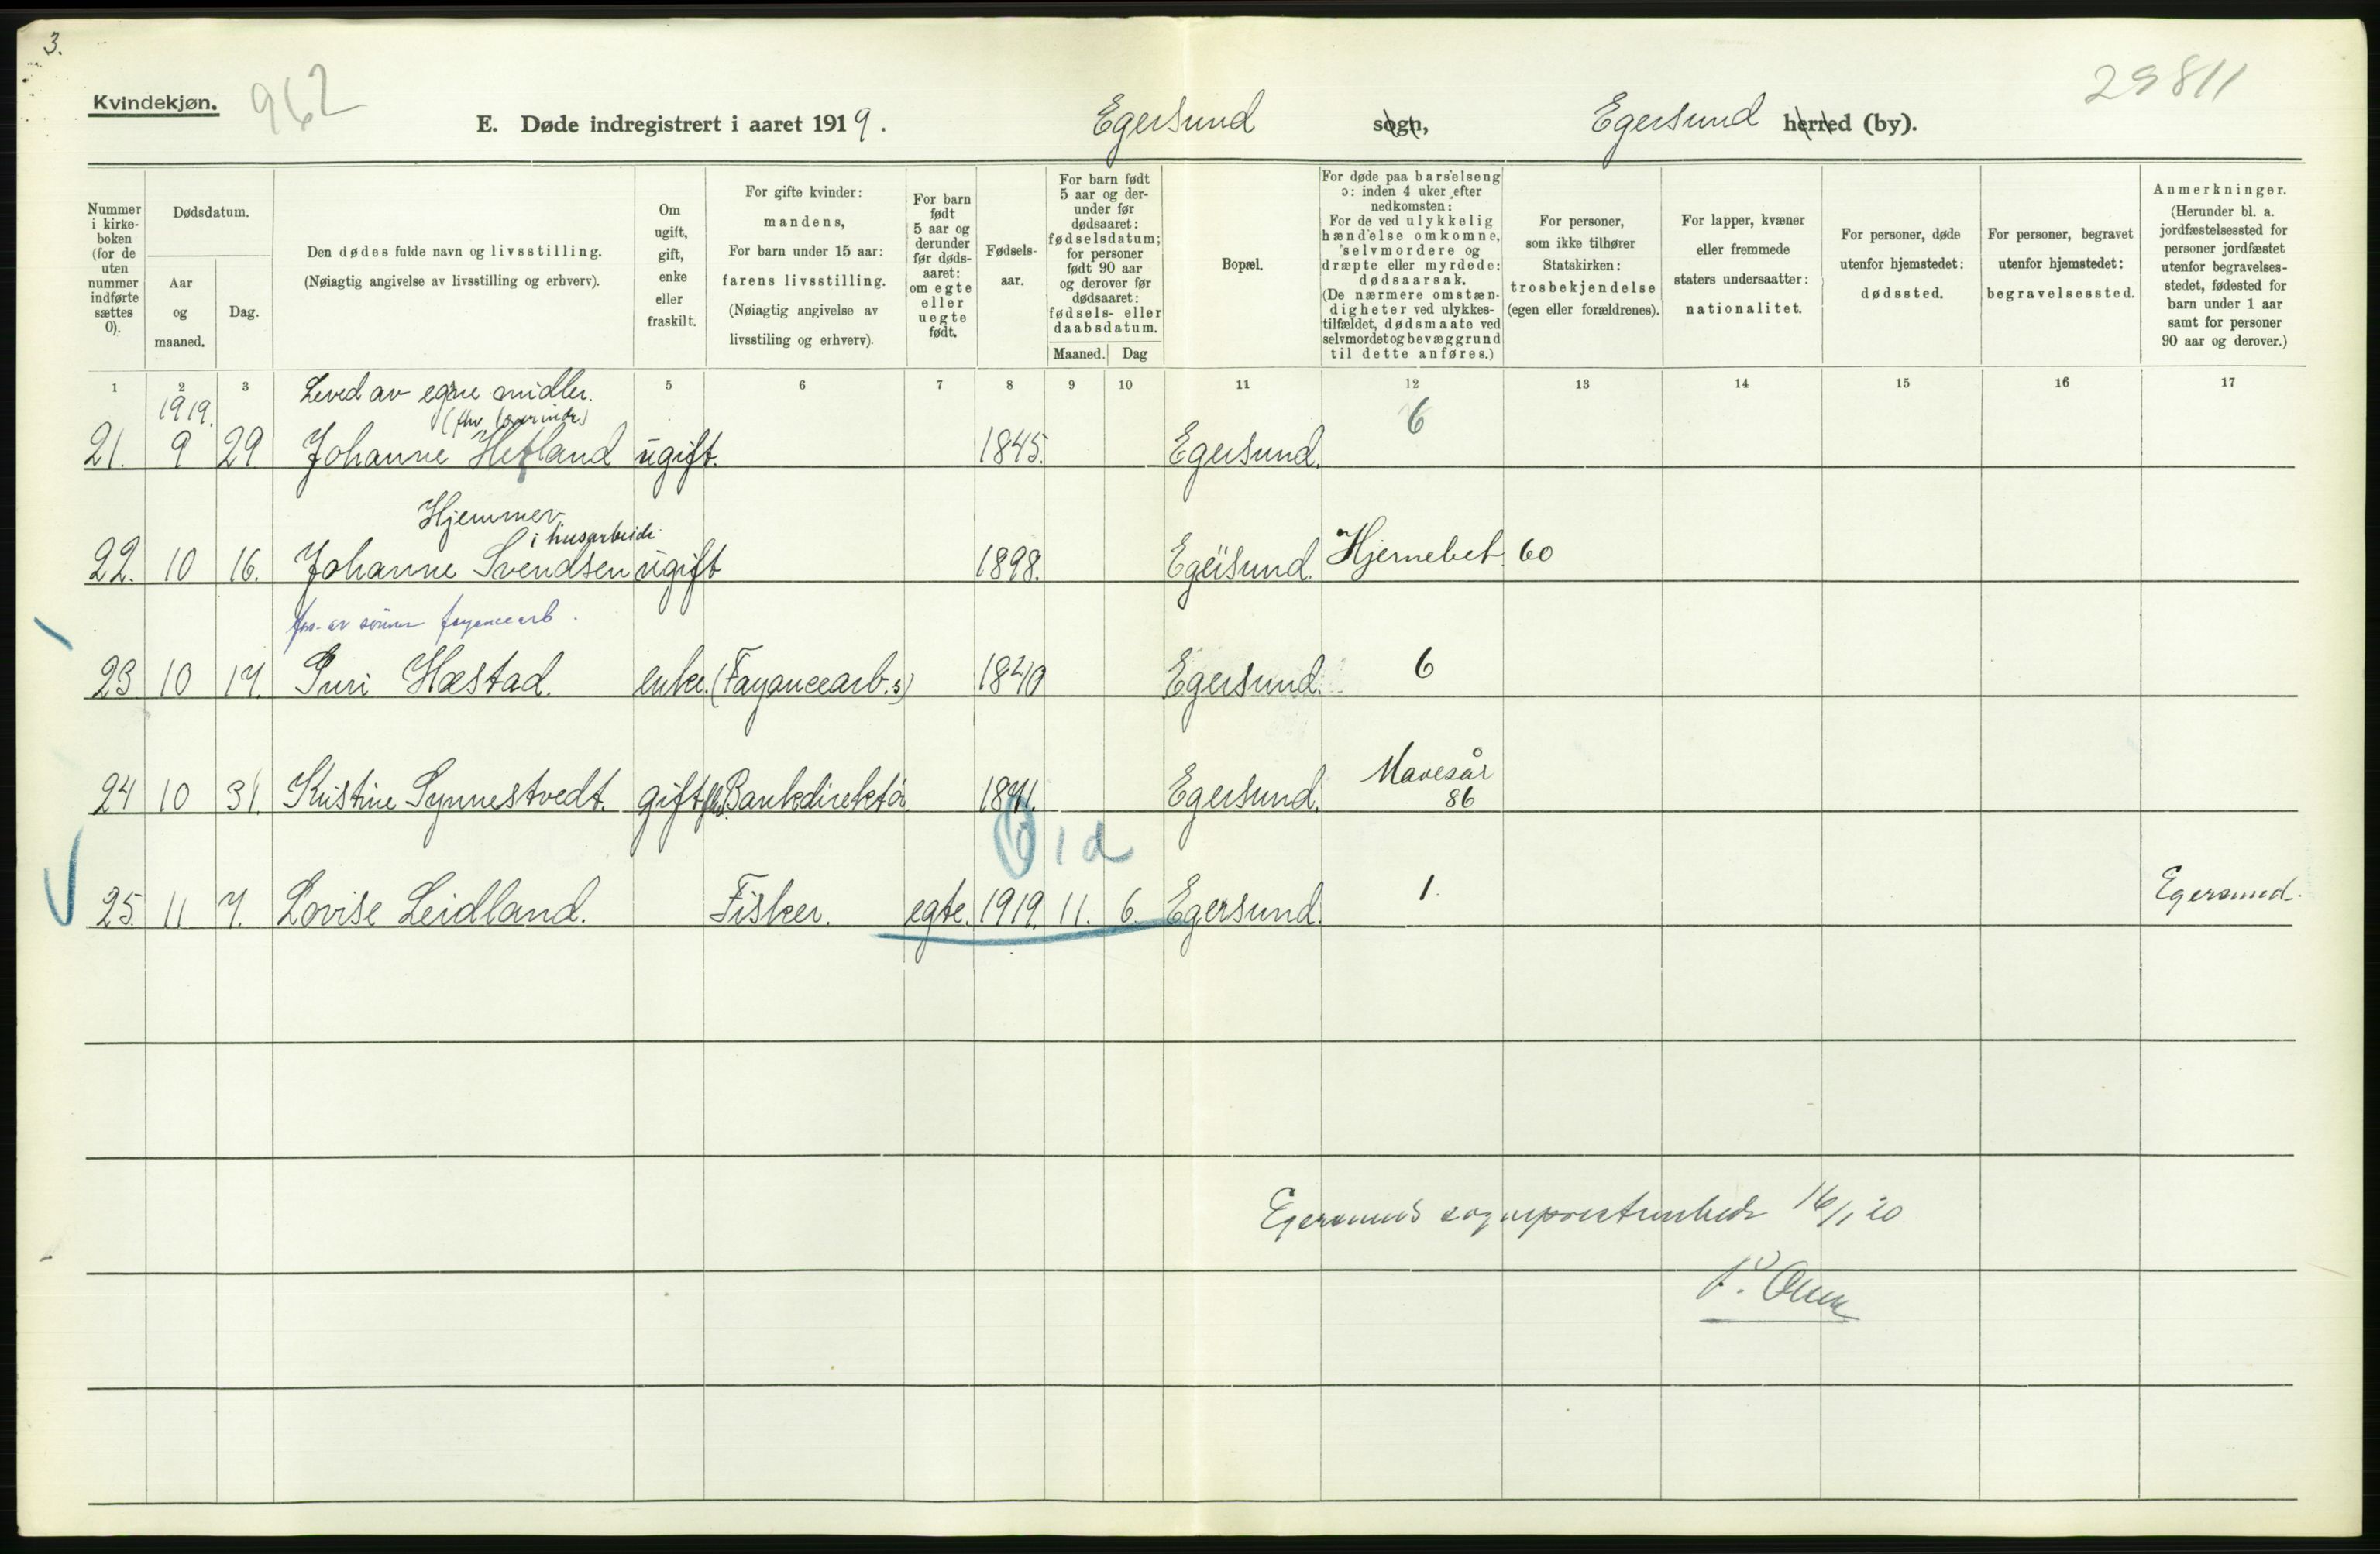 3.
Kvindekjøn. 962 29811
E. Døde indregistrert i aaret 1919. Egersund sogn, Egersund herred (by).
Nummer i kirke-boken (for de uten nummer indførte sættes 0).
Dødsdatum.
Aar og maaned.
Dag.
Den dødes fulde navn og livsstilling.
(Nøiagtig angivelse av livsstilling og erhverv).
Om ugift, gift, enke eller fraskilt.
For gifte kvinder: mandens,
For barn under 15 aar: farens livsstilling.
(Nøiagtig angivelse av livsstiling og erhverv).
For barn født 5 aar og derunder før døds-aaret: om egte eller uegte født.
Fødsels-aar.
For barn født 5 aar og der-under før dødsaaret: fødselsdatum; for personer født 90 aar og derover før dødsaaret: fødsels- eller daabsdatum.
Maaned. Dag
Bopæl.
For døde paa barselseng ɔ: inden 4 uker efter nedkomsten:
For de ved ulykkelig hændelse omkomne, selvmordere og dræpte eller myrdede: dødsaarsak.
(De nærmere omstæn-digheter ved ulykkes-tilfældet, dødsmaate ved selvmordet og bevæggrund til dette anføres.)
For personer, som ikke tilhører Statskirken: trosbekjendelse (egen eller forældrenes).
For lapper, kvæner eller fremmede staters undersaatter: nationalitet.
For personer, døde utenfor hjemstedet: dødssted.
For personer, begravet utenfor hjemstedet: begravelsessted.
Anmerkninger.
(Herunder bl. a. jordfæstelsessted for personer jordfæstet utenfor begravelses-stedet, fødested for barn under 1 aar samt for personer 90 aar og derover.)
1 2 3 5 6 7 8 9 10 11 12 13 14 15 16 17
1919. Leved av egne midler.
6
21. 9 29 Johanne Hetland ugift. 1845. Egersund.
Hjemmev.
i husarbeide
22. 10 16. Johanne Svendsen ugift 1898. Egersund. Hjernebet. 60
fors. av sönnen fayancearb.
23 10 17. Guri Hæstad. enke. (Fayancearb.s) 1840 Egersund. 6
24 10 31. Kristine Synnestvedt. gift Bankdirektör. 1871. Egersund. Mavesår 86
0 1 d
25. 11 7. Lovise Leidland. Fisker. egte. 1919. 11. 6. Egersund. 1. Egersund.
Egersund sogneprestembede 16/1 20